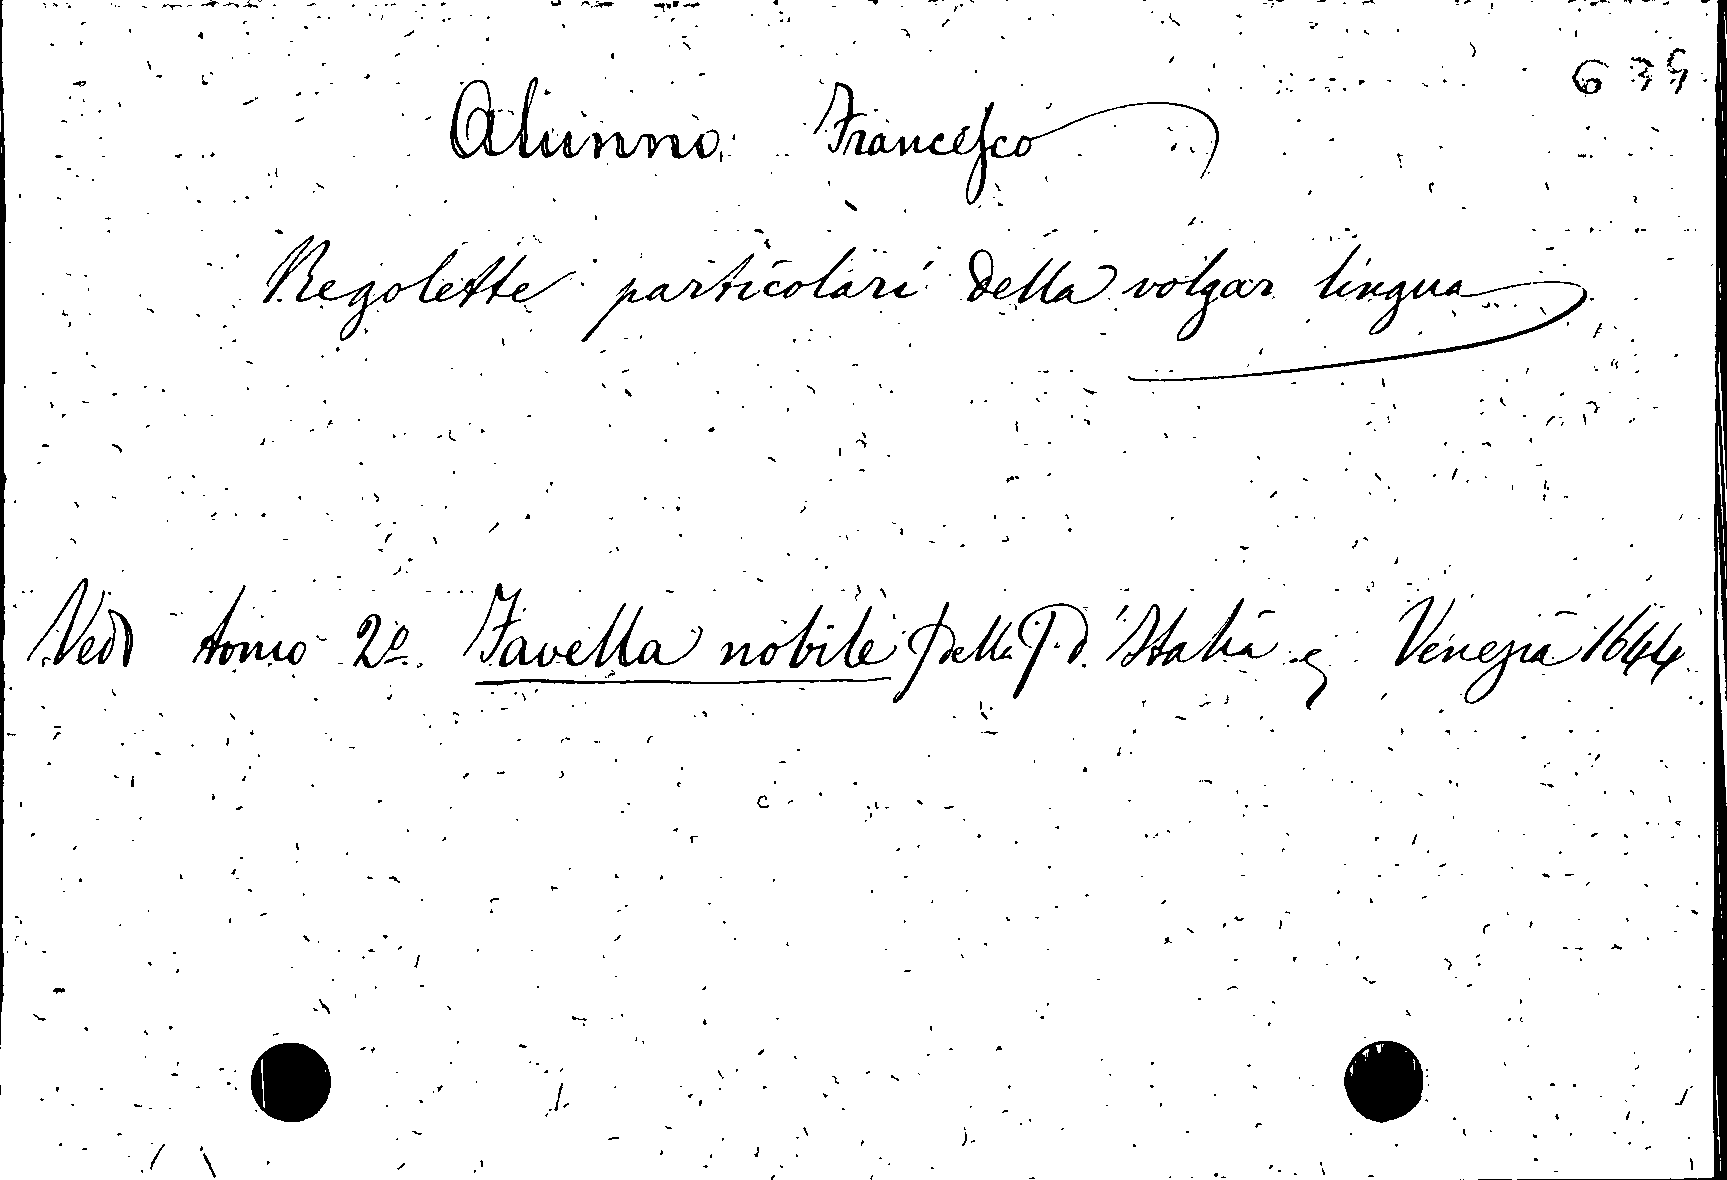 639
Alunno Francesco
Regolette particolari della volgar lingua
Vedi tomo 2º. Favella nobile della P. d'Italia Venezia 1644